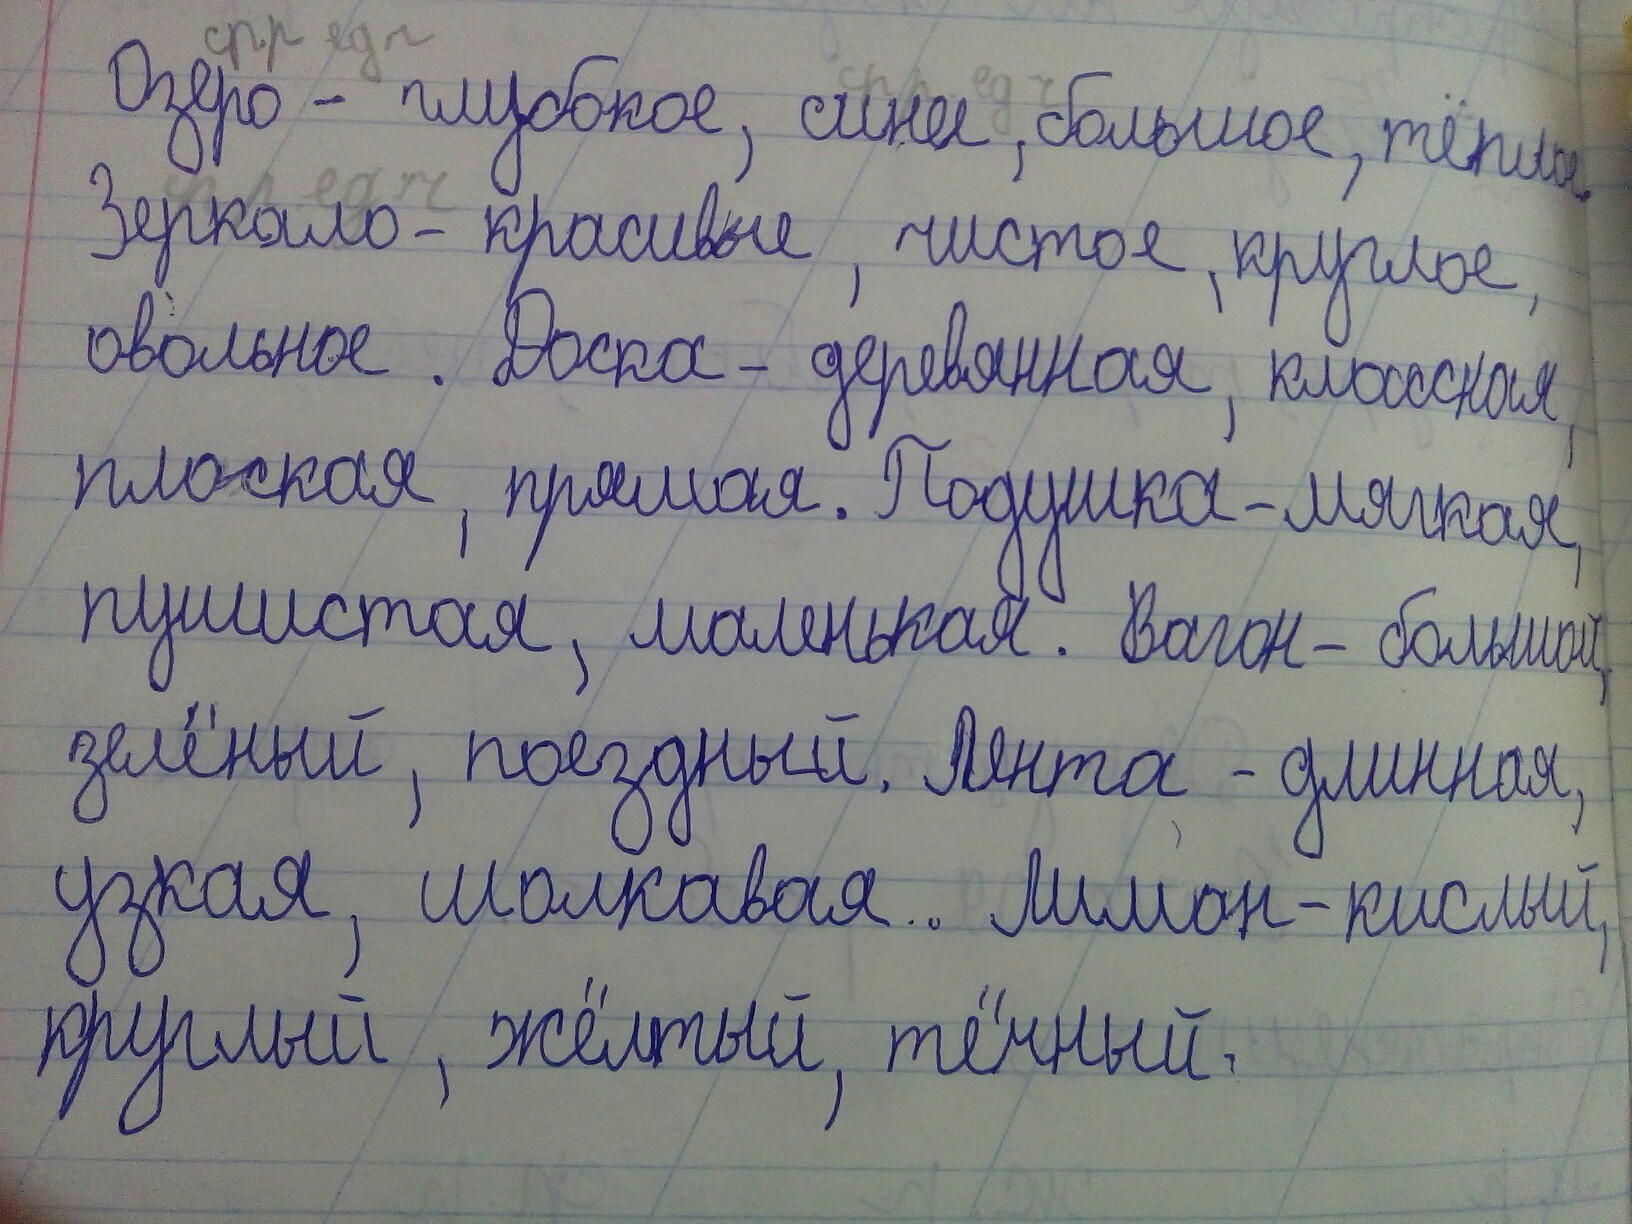 ср.р ед ч
Озеро - глубокое, сине, большое, тёплое.
ср.р. ед ч
ср р ед ч
Зеркало - красивые, чистое, круглое,
овольное. Доска - деревянная, классная,
плоская, прямая. Подушка - мягкая,
пушистая, маленькая. Вагон - большой,
зелёный, поездный. Лента - длинная,
узкая, шолкавая.. Лимон - кислый,
круглый, жёлтый, тёчный.